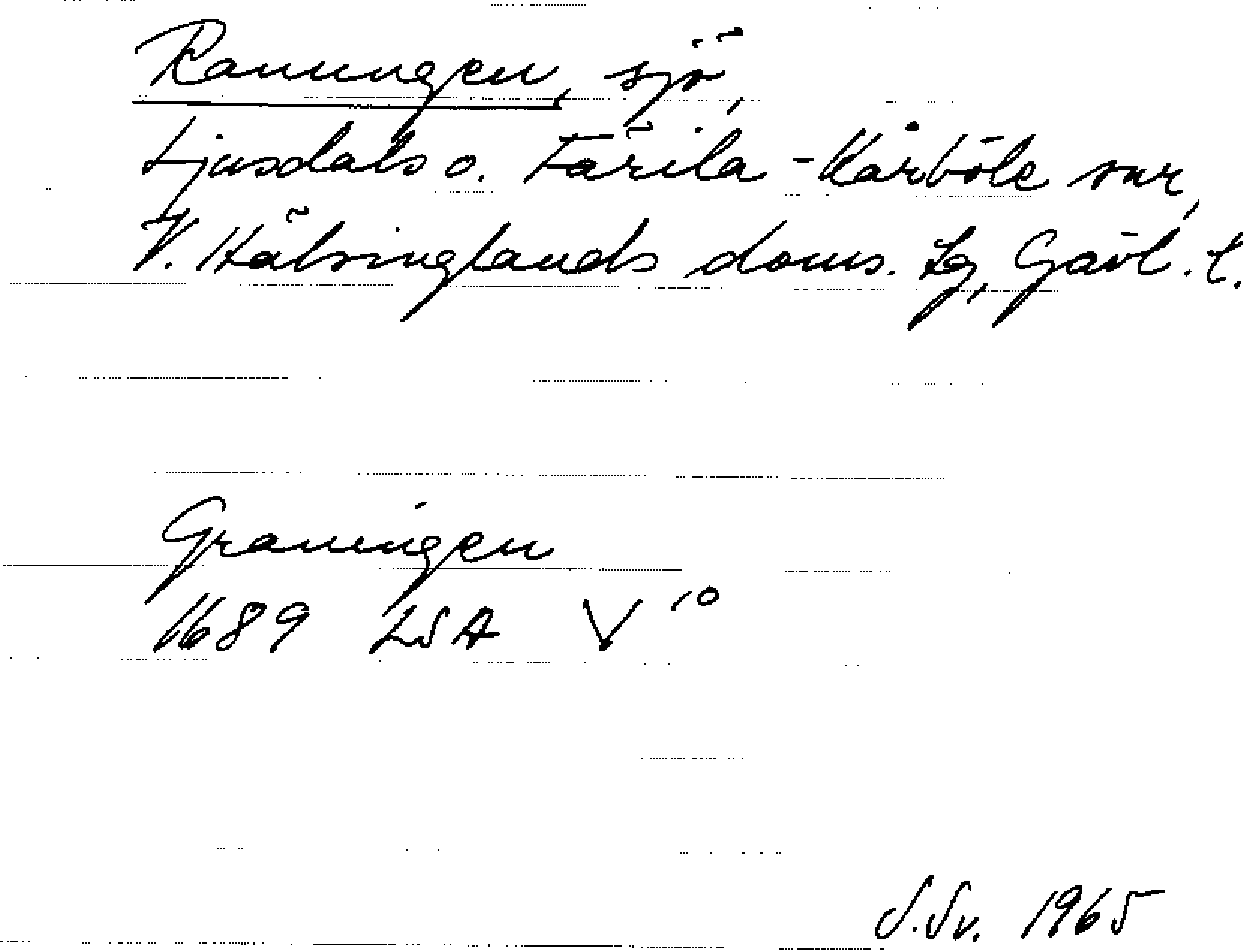 Ranningen, sjö,
Ljusdals o. Färila-Kårböle snr,
V. Hälsinglands doms. lg, Gävl. l.
Graningen
1689 LSA V 10
S.Sv. 1965